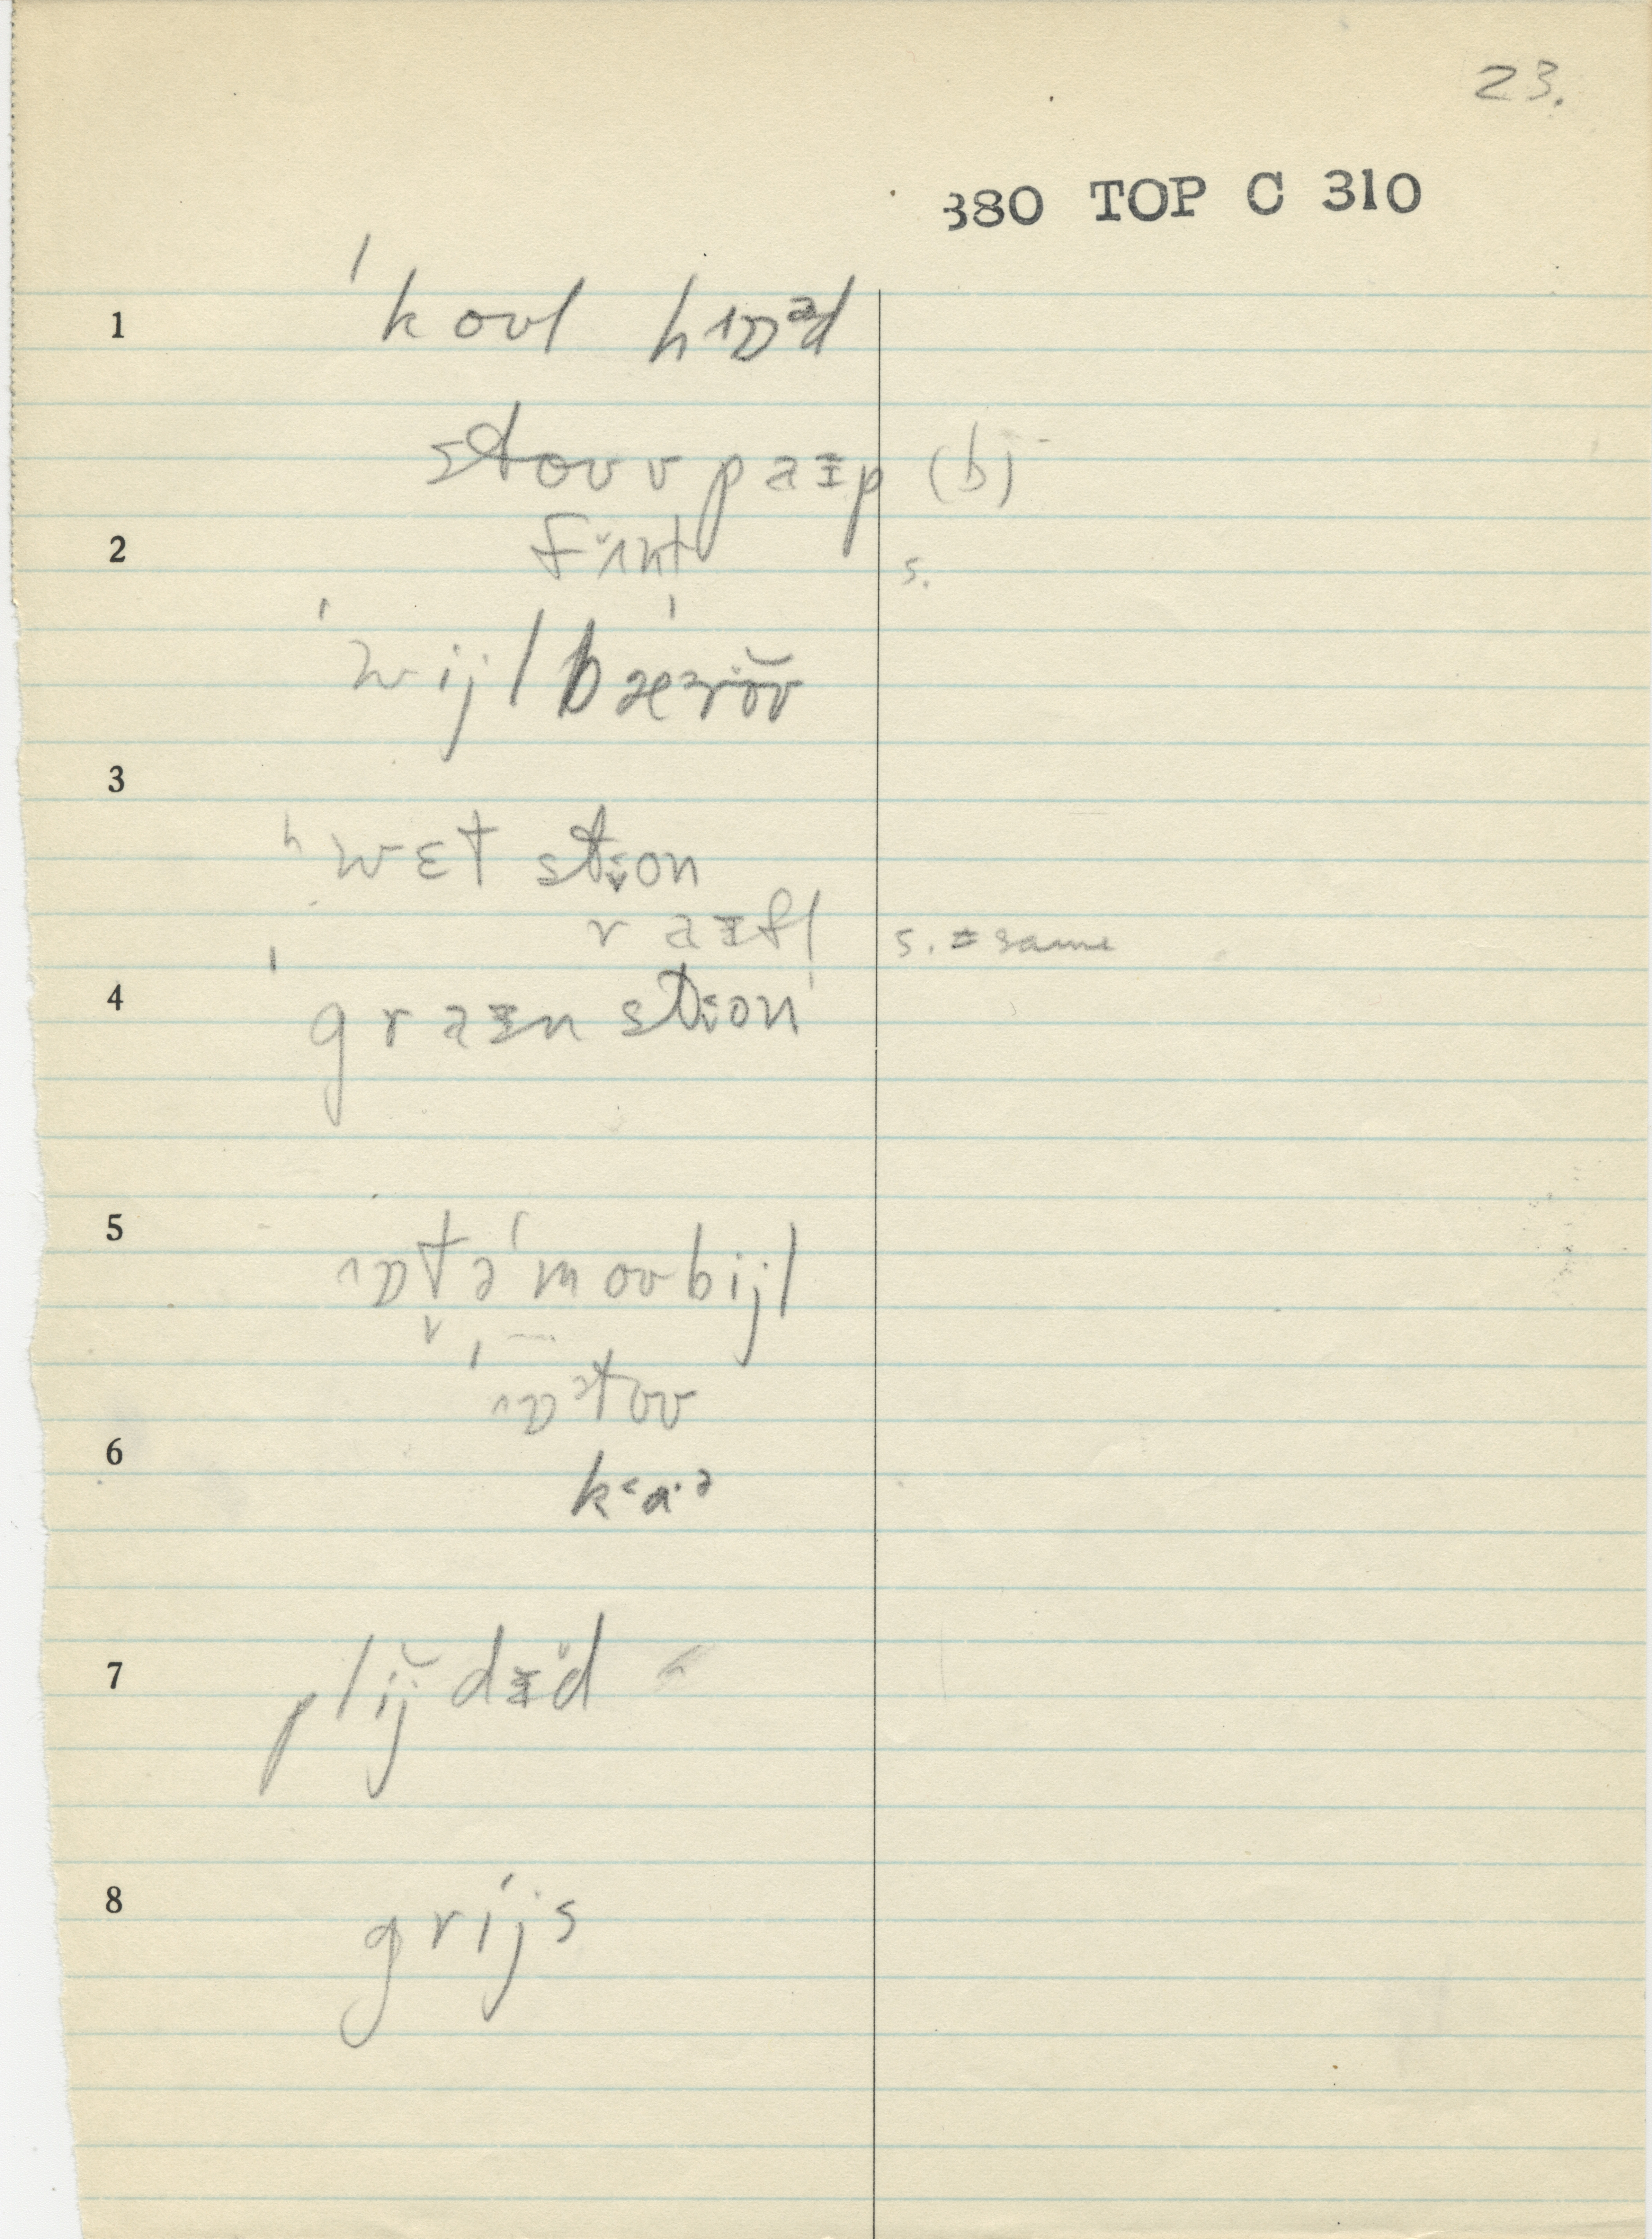 23.
380 TOP C 310
1 ˈkoʊl hɒᵊd
stoʊv paɪp (b)
2 flʌnt s.
ˈwijl bæˈroʊ
3
ʰwɛt stɔn
raɪfl s. = same
4 ˈgraɪn stɔn
5 ɒtəˈmoʊbijl
ˈɒtoʊ
6 kaˑə
7 plijdɪd
8 grijs